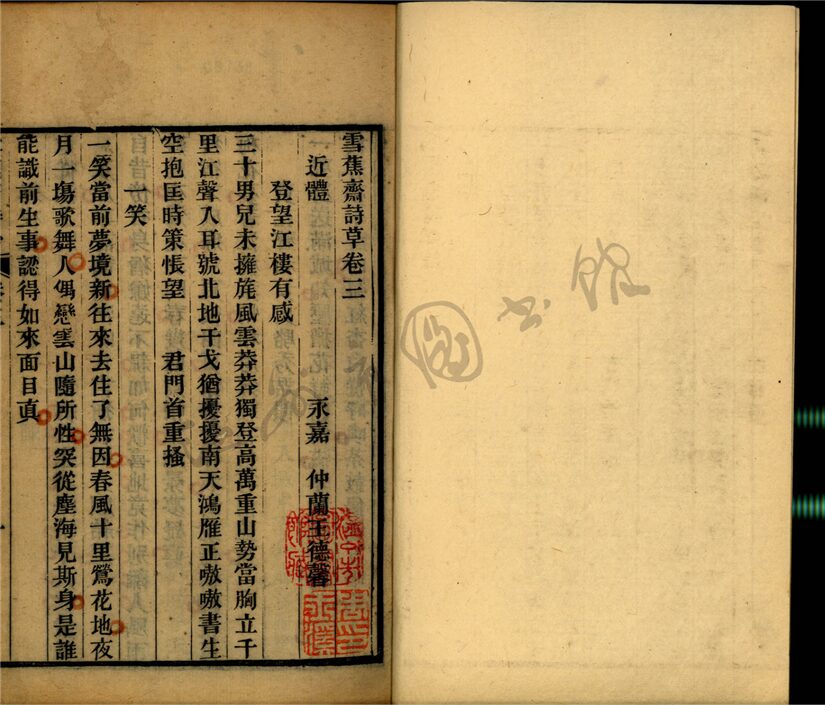 雪蕉齋詩草卷三
近體 永嘉 仲蘭王德馨
登望江樓有感
三十男兒未擁旄風雲莽莽獨登高萬重山勢當胸立千
里江聲入耳號北地干戈猶擾擾南天鴻雁正嗷嗷書生
空抱匡時策悵望 君門首重搔
一笑
一笑當前夢境新往來去住了無因春風十里鶯花地夜
月一場歌舞人偶戀雲山隨所性突從塵海見斯身是誰
能識前生事認得如來面目真